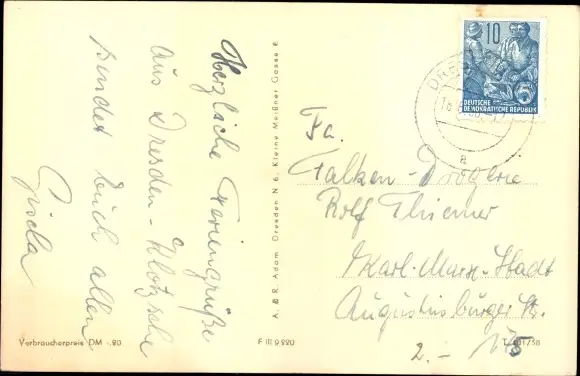 Herzliche Feriengrüße
aus Dresden-Klotzsche
sendet Euch allen
Gisela
A. & R. Adam, Dresden N 6, Kleine Meißner Gasse 6
10
DEUTSCHE
DEMOKRATISCHE REPUBLIK
5
DRES
a
Fa.
Falken-Drogerie
Rolf Thiemer
Karl-Marx-Stadt
Augustusburger Str.
2.-
Verbraucherpreis DM -.20
F III 9220